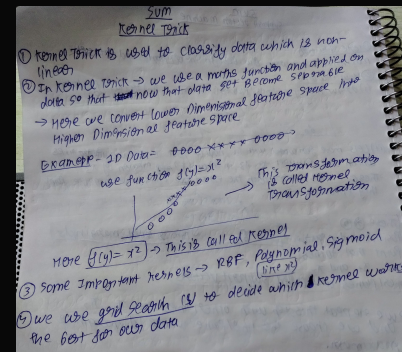 SVM
Kernel Trick
① Kernel Trick is used to classify data which is non-
linear
② In Kernel Trick → we use a maths function and applied on
data so that now that data set become seprable
→ Here we convert lower Dimensional feature space into
Higher Dimensional feature space
Example - 1D Data = oooo xxxx oooo
use function f(y) = x²
This transformation
is called Kernel
Transformation
Here f(y) = x² → This is called Kernel
③ Some Important kernels → RBF, Polynomial, Sigmoid
(like x²)
④ we use grid search to decide which Kernel work
the best for our data